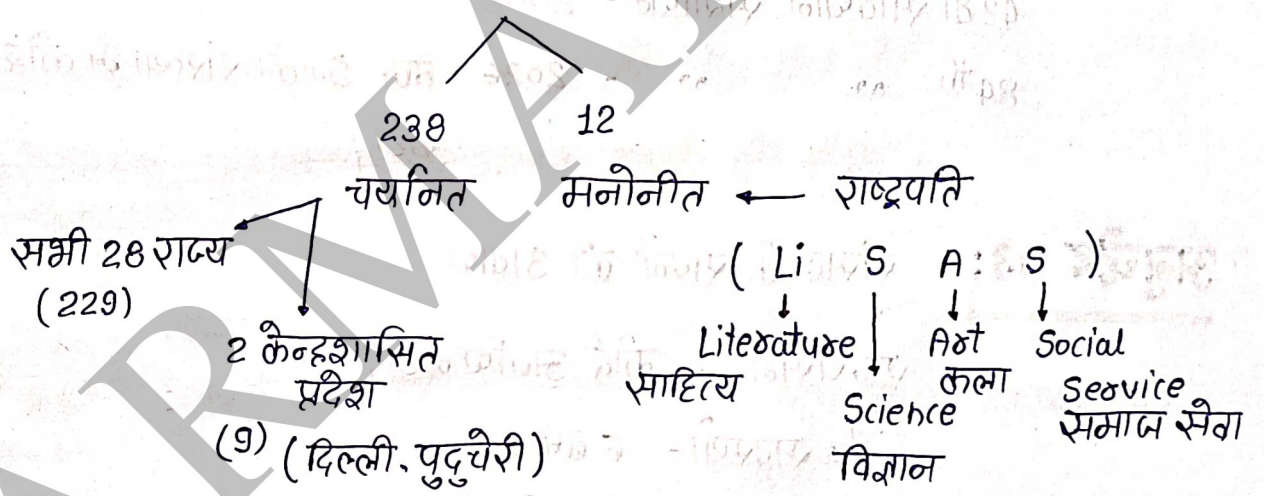 238 12
चयनित मनोनीत ← राष्ट्रपति
सभी 28 राज्य
(229)
( Li S A : S )
2 केन्द्रशासित
प्रदेश
(9) (दिल्ली, पुदुचेरी)
Literature
साहित्य
Science
विज्ञान
Art
कला
Social
Service
समाज सेवा